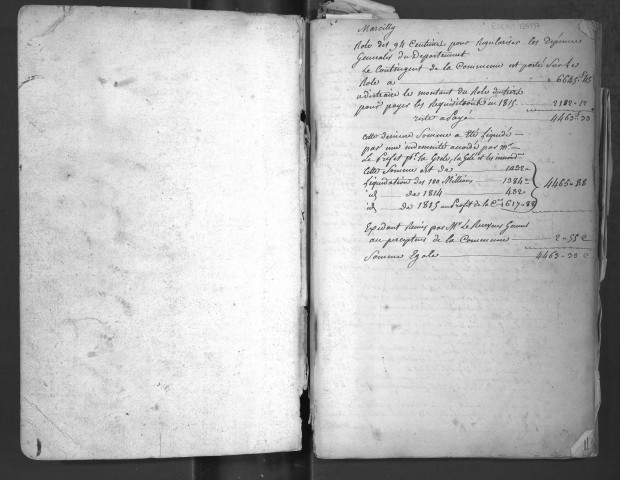 Marcilly
Role des 94 Centimes pour regulariser les Depenses
Generales du Departement
Le Contingent de la Commune est porté sur les
Role a 6645 - 45
a distraire le montant du Roles
pour payer les Requisitions en 1815 - 2182 - 12
reste a Payer 4463 - 33
Cette derniere Somme a été liquidé
par une indemnité accordé par Mr
Le Prefet pr. la Grele, la Gelé et les
Cette Somme est de 1032 -
Liquidation des 100 Millions 1384 -
id de 1814 432 - 4465 - 88
id de 1815 au Profit de la Cne 1617 - 88
Expedant Remis par Mr
au percepteur de la Commune 2 - 55 c
Somme Egale 4463 - 33 c